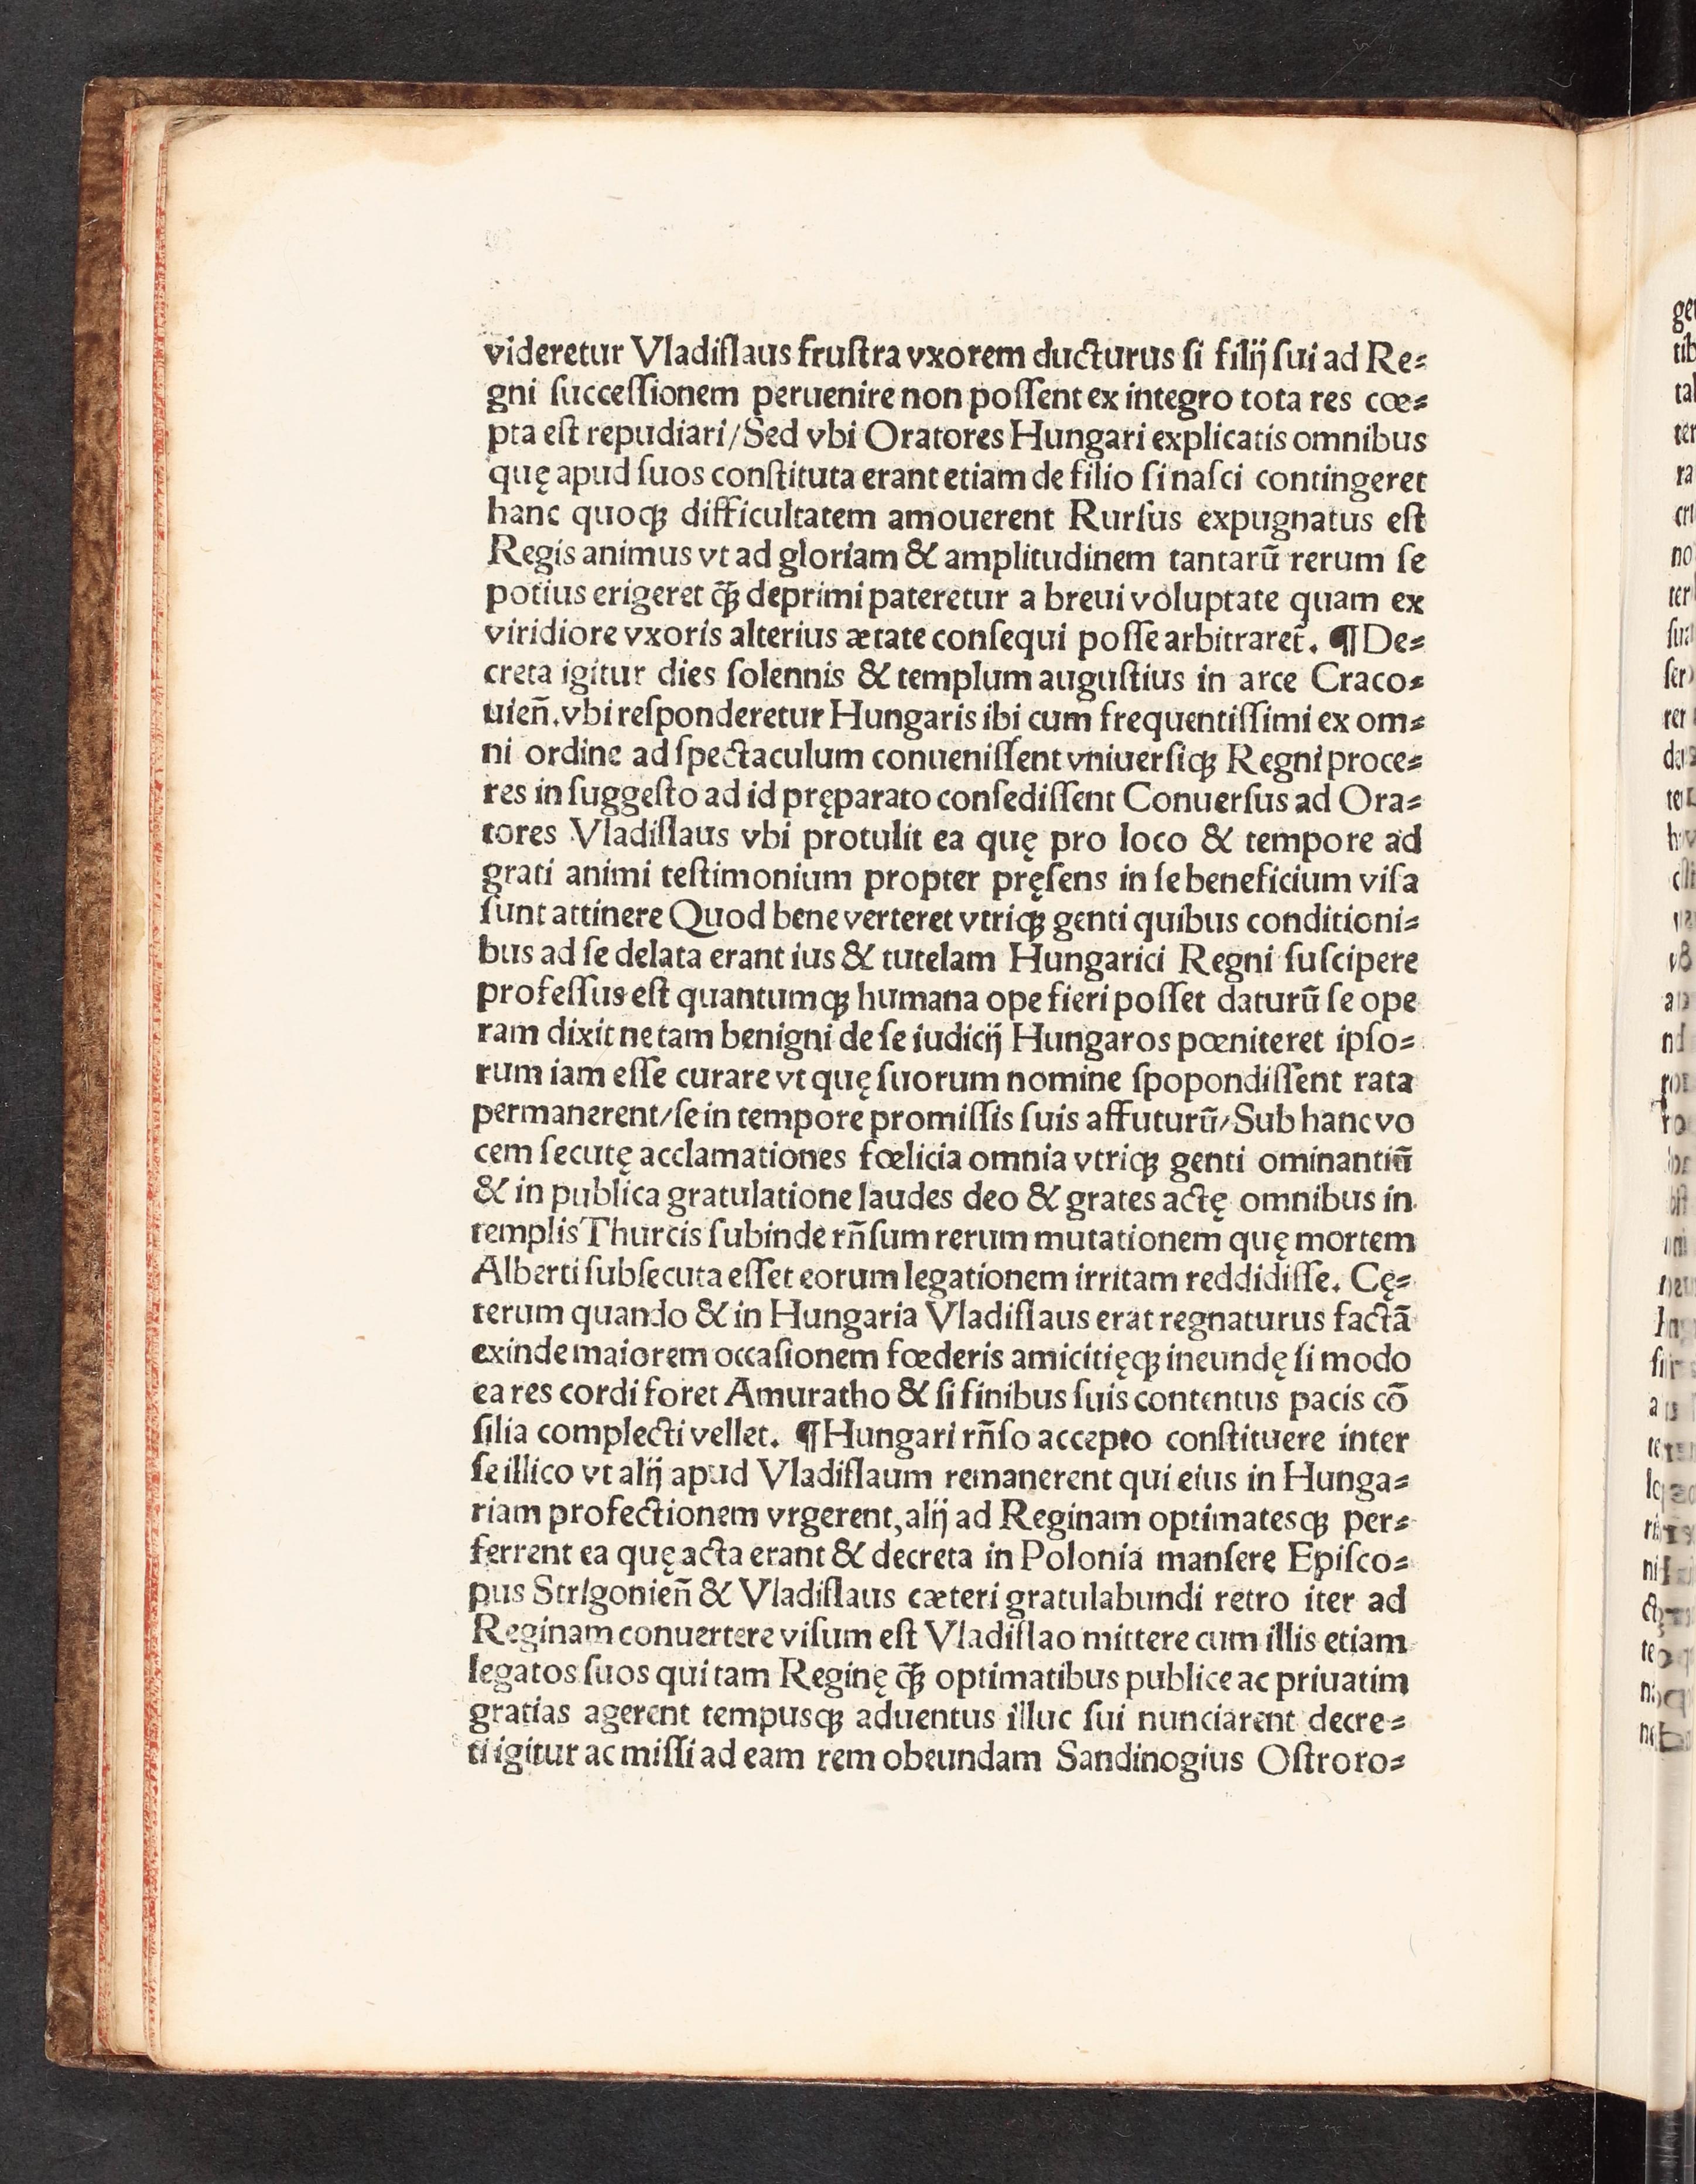 videretur Vladiſlaus fruſtra vxorem ducturus ſi filij ſui ad Re⸗
gni ſucceſſionem peruenire non poſſent ex integro tota res cœ⸗
pta eſt repudiari/Sed vbi Oratores Hungari explicatis omnibus
quę apud ſuos conſtituta erant etiam de filio ſi naſci contingeret
hanc quoqꝫ difficultatem amouerent Rurſus expugnatus eſt
Regis animus vt ad gloriam & amplitudinem tantarū rerum ſe
potius erigeret q̄ꝫ deprimi pateretur a breui voluptate quam ex
viridiore vxoris alterius ætate conſequi poſſe arbitraret̄. ¶ De⸗
creta igitur dies ſolennis & templum auguſtius in arce Craco⸗
uien̄. vbi reſponderetur Hungaris ibi cum frequentiſſimi ex om⸗
ni ordine ad ſpectaculum conueniſſent vniuerſiqꝫ Regni proce⸗
res in ſuggeſto ad id pręparato conſediſſent Conuerſus ad Ora⸗
tores Vladiſlaus vbi protulit ea quę pro loco & tempore ad
grati animi teſtimonium propter pręſens in ſe beneficium viſa
ſunt attinere Quod bene verteret vtriqꝫ genti quibus conditioni⸗
bus ad ſe delata erant ius & tutelam Hungarici Regni ſuſcipere
profeſſus eſt quantumqꝫ humana ope fieri poſſet daturū ſe ope
ram dixit ne tam benigni de ſe iudicij Hungaros pœniteret ipſo⸗
rum iam eſſe curare vt quę ſuorum nomine ſpopondiſſent rata
permanerent/ſe in tempore promiſſis ſuis affuturū/Sub hanc vo
cem ſecutę acclamationes fœlicia omnia vtriqꝫ genti ominantiū
& in publica gratulatione laudes deo & grates actę omnibus in
templis Thurcis ſubinde rn̄ſum rerum mutationem quę mortem
Alberti ſubſecuta eſſet eorum legationem irritam reddidiſſe. Cę⸗
terum quando & in Hungaria Vladiſlaus erat regnaturus factā
exinde maiorem occaſionem fœderis amicitięqꝫ ineundę ſi modo
ea res cordi foret Amuratho & ſi finibus ſuis contentus pacis cō
ſilia complecti vellet. ¶ Hungari rn̄ſo accepto conſtituere inter
ſe illico vt alij apud Vladiſlaum remanerent qui eius in Hunga⸗
riam profectionem vrgerent, alij ad Reginam optimatesqꝫ per⸗
ferrent ea quę acta erant & decreta in Polonia manſere Epiſco⸗
pus Strigonien̄ & Vladiſlaus cæteri gratulabundi retro iter ad
Reginam conuertere viſum eſt Vladiſlao mittere cum illis etiam
legatos ſuos qui tam Reginę q̄ꝫ optimatibus publice ac priuatim
gratias agerent tempusqꝫ aduentus illuc ſui nunciarent decre⸗
ti igitur ac miſſi ad eam rem obeundam Sandinogius Oſtroro⸗